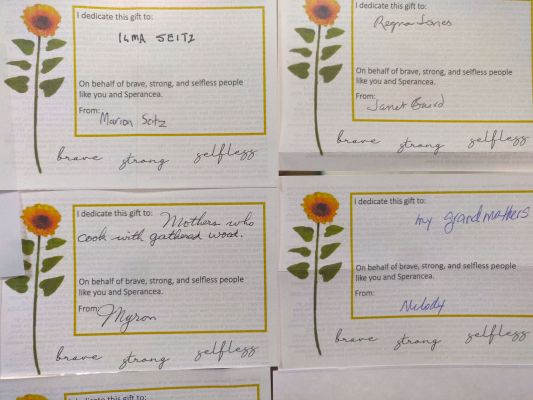 I dedicate this gift to:
ILMA SEITZ
On behalf of brave, strong, and selfless people
like you and Sperancea.
From:
Marion Seitz
brave strong selfless
Regna Jones
On behalf of brave, strong, and selfless people
like you and Sperancea.
From:
Janet Baird
brave strong selfless
I dedicate this gift to: Mothers who
cook with gathered wood.
On behalf of brave, strong, and selfless people
like you and Sperancea.
From:
Myron
brave strong selfless
I dedicate this gift to:
my grandmothers
On behalf of brave, strong, and selfless people
like you and Sperancea.
From:
Melody
brave strong selfless
I dedicate this gift to: